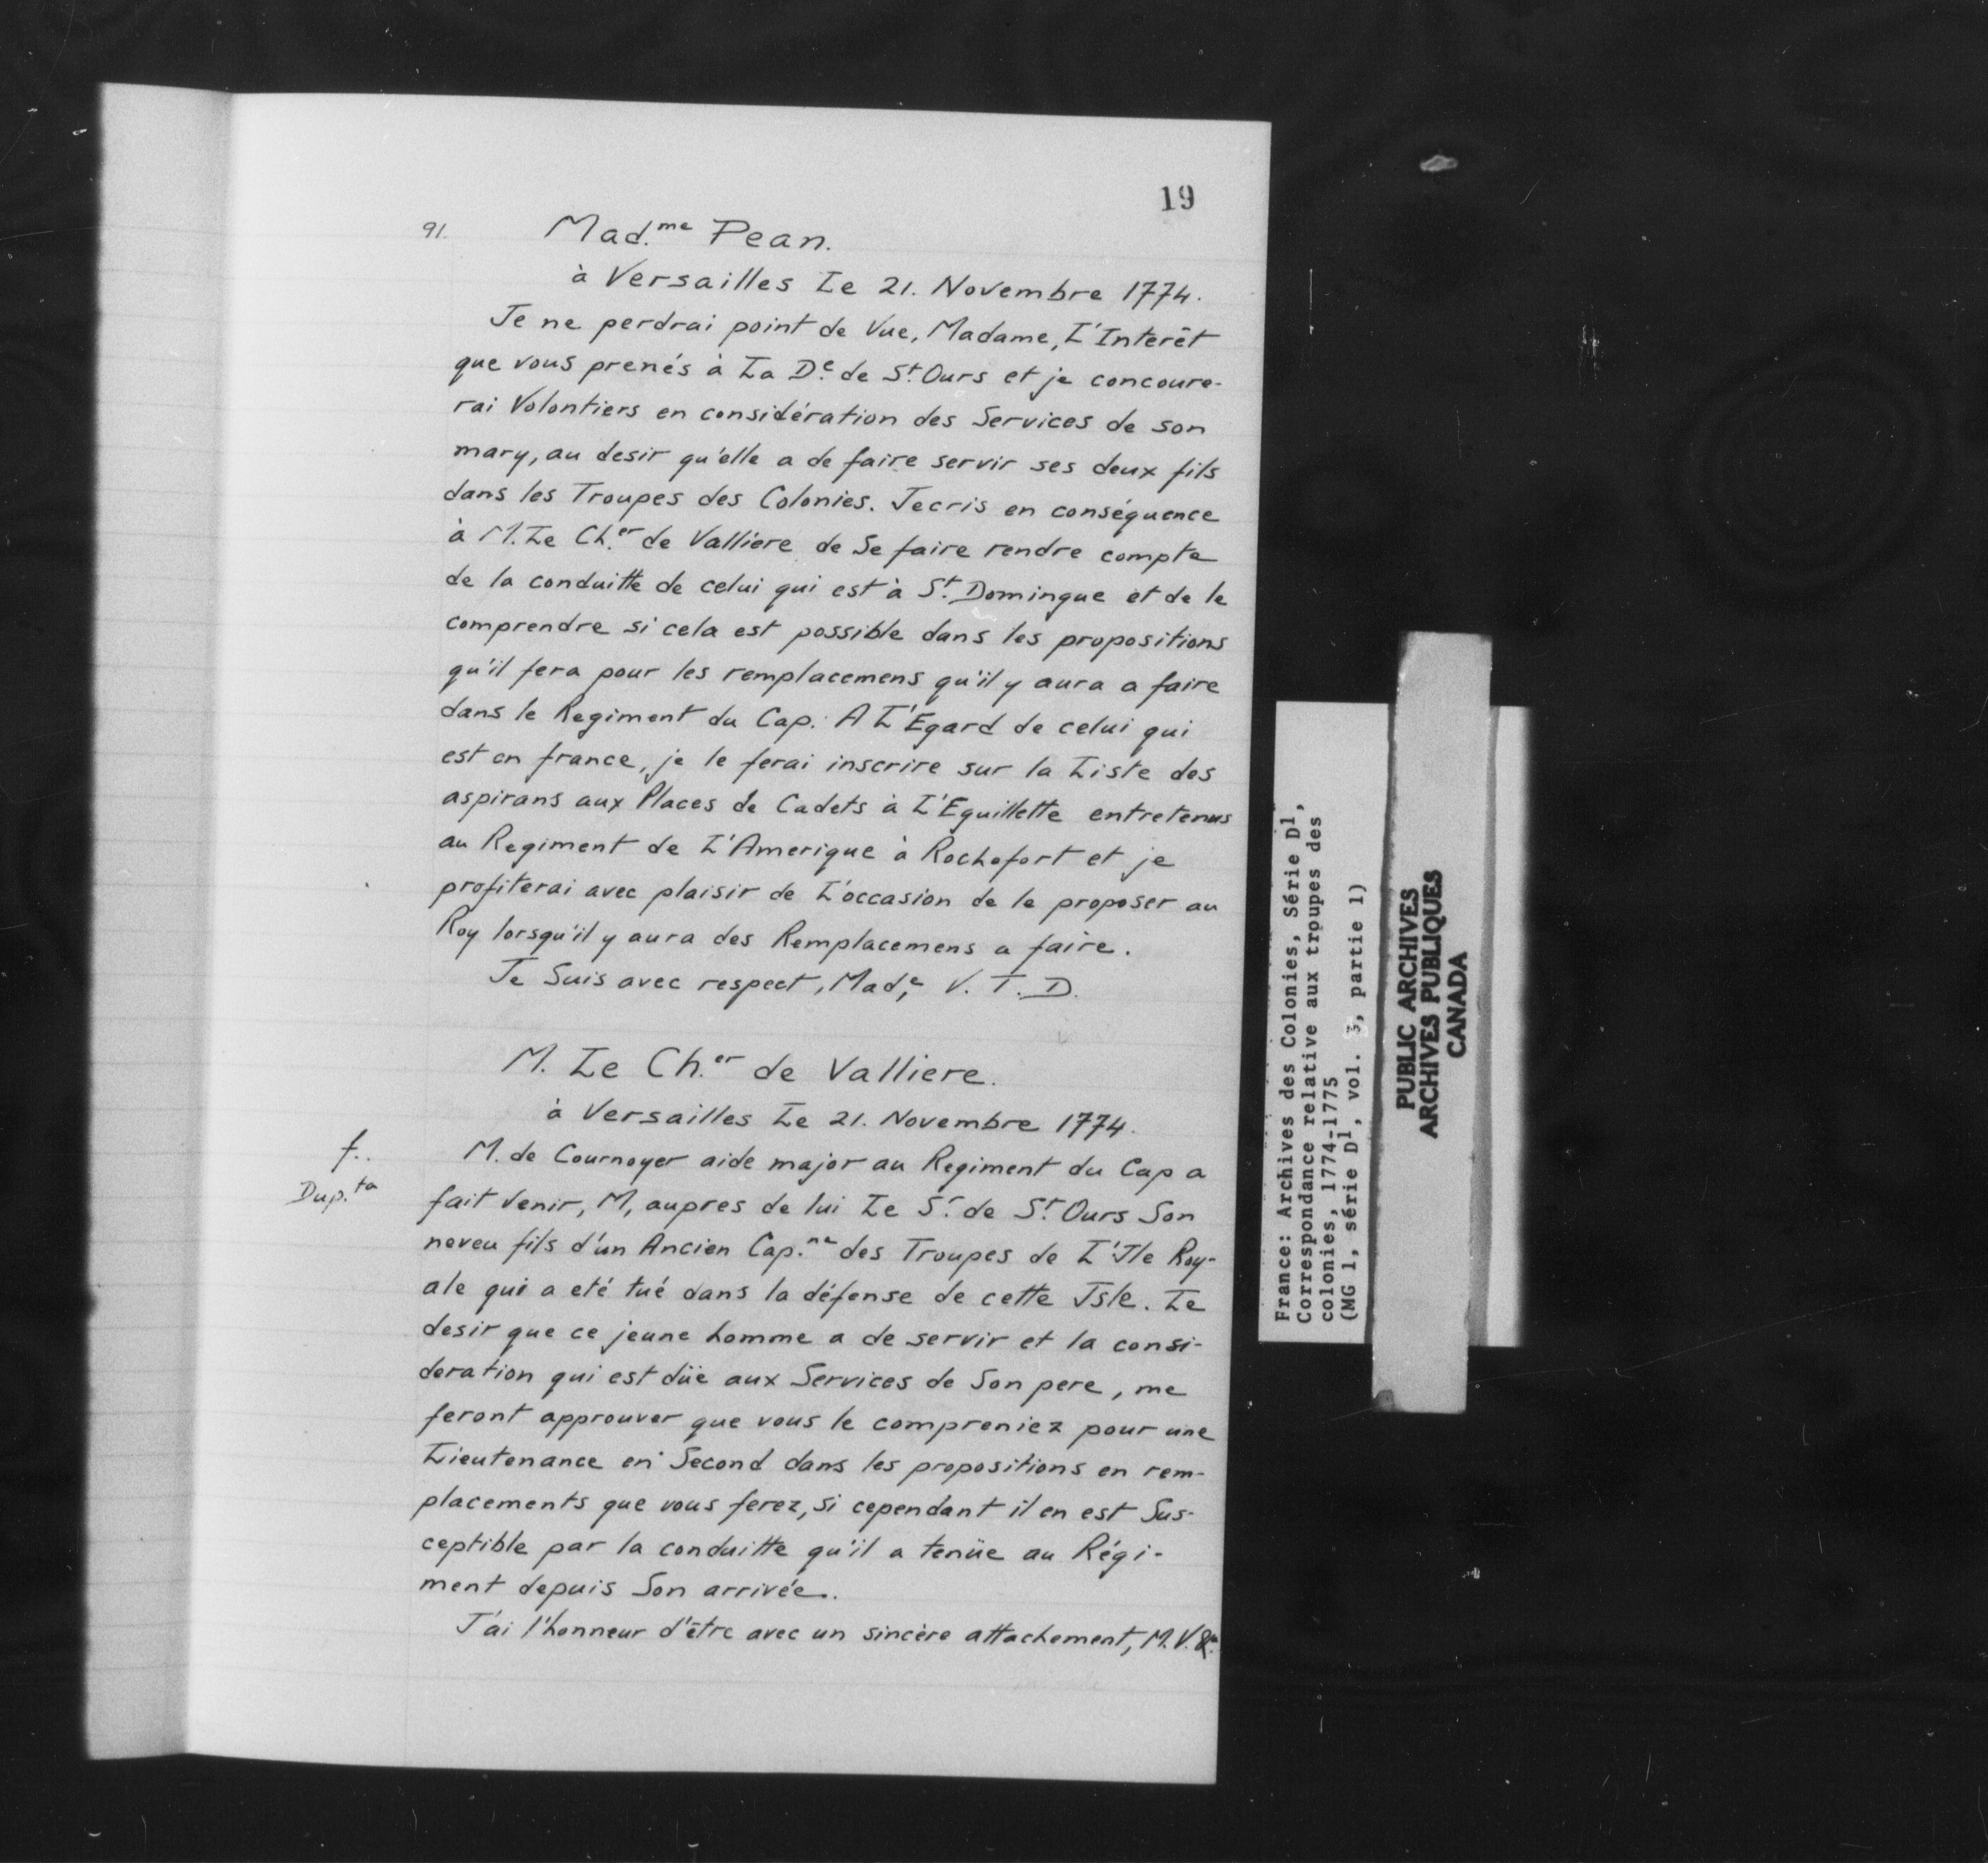 19
91.
Mad.me Pean.
à Versailles Le 21. Novembre 1774.
Je ne perdrai point de Vue, Madame, L'Interêt
que vous prenés à La D.e de St. Ours et je concoure-
rai Volontiers en considération des Services de son
mary, au desir qu'elle a de faire servir ses deux fils
dans les Troupes des Colonies. Jecris en conséquence
à M. Le Ch.er de Valliere de Se faire rendre compte
de la conduitte de celui qui est à St. Domingue et de le
comprendre si cela est possible dans les propositions
qu'il fera pour les remplacemens qu'il y aura a faire
dans le Regiment du Cap. A L'Egard de celui qui
est en france, je le ferai inscrire sur la Liste des
aspirans aux Places de Cadets à L'Eguillette entretenus
au Regiment de L'Amerique à Rochefort et je
profiterai avec plaisir de L'occasion de le proposer au
Roy lorsqu'il y aura des Remplacemens a faire.
Je Suis avec respect, Mad.e V. T. D.
M. Le Ch.er de Valliere.
à Versailles Le 21. Novembre 1774.
f..
Dup.ta
M. de Cournoyer aide major au Regiment du Cap a
fait venir, M, aupres de lui Le Sr. de St. Ours Son
neveu fils d'un Ancien Cap.ne des Troupes de L'Ile Roy-
ale qui a eté tué dans la défense de cette Isle. Le
desir que ce jeune homme a de servir et la consi-
deration qui est düe aux Services de Son pere, me
feront approuver que vous le compreniez pour une
Lieutenance en Second dans les propositions en rem-
placements que vous ferez, si cependant il en est Sus-
ceptible par la conduitte qu'il a tenüe au Régi-
ment depuis Son arrivée.
J'ai l'honneur d'être avec un sincère attachement, M. V. &a.
France: Archives des Colonies, Série D1,
Correspondance relative aux troupes des
colonies, 1774-1775
(MG 1, série D1, vol. 3, partie 1)
PUBLIC ARCHIVES
ARCHIVES PUBLIQUES
CANADA